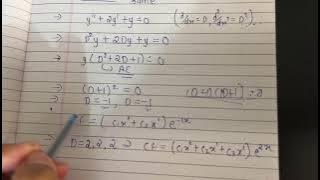 → y'' + 2y' + y = 0 (d/dx = D, d²/dx² = D²)
→ D²y + 2Dy + y = 0
→ y(D² + 2D + 1) = 0
AE
→ (D+1)² = 0 (D+1)(D+1) = 0
→ D = -1, D = -1
= (c₁x⁰ + c₂x¹) e⁻¹ˣ
→ D = 2, 2, 2 ⇒ CF = (c₁x⁰ + c₂x¹ + c₃x²) e²ˣ